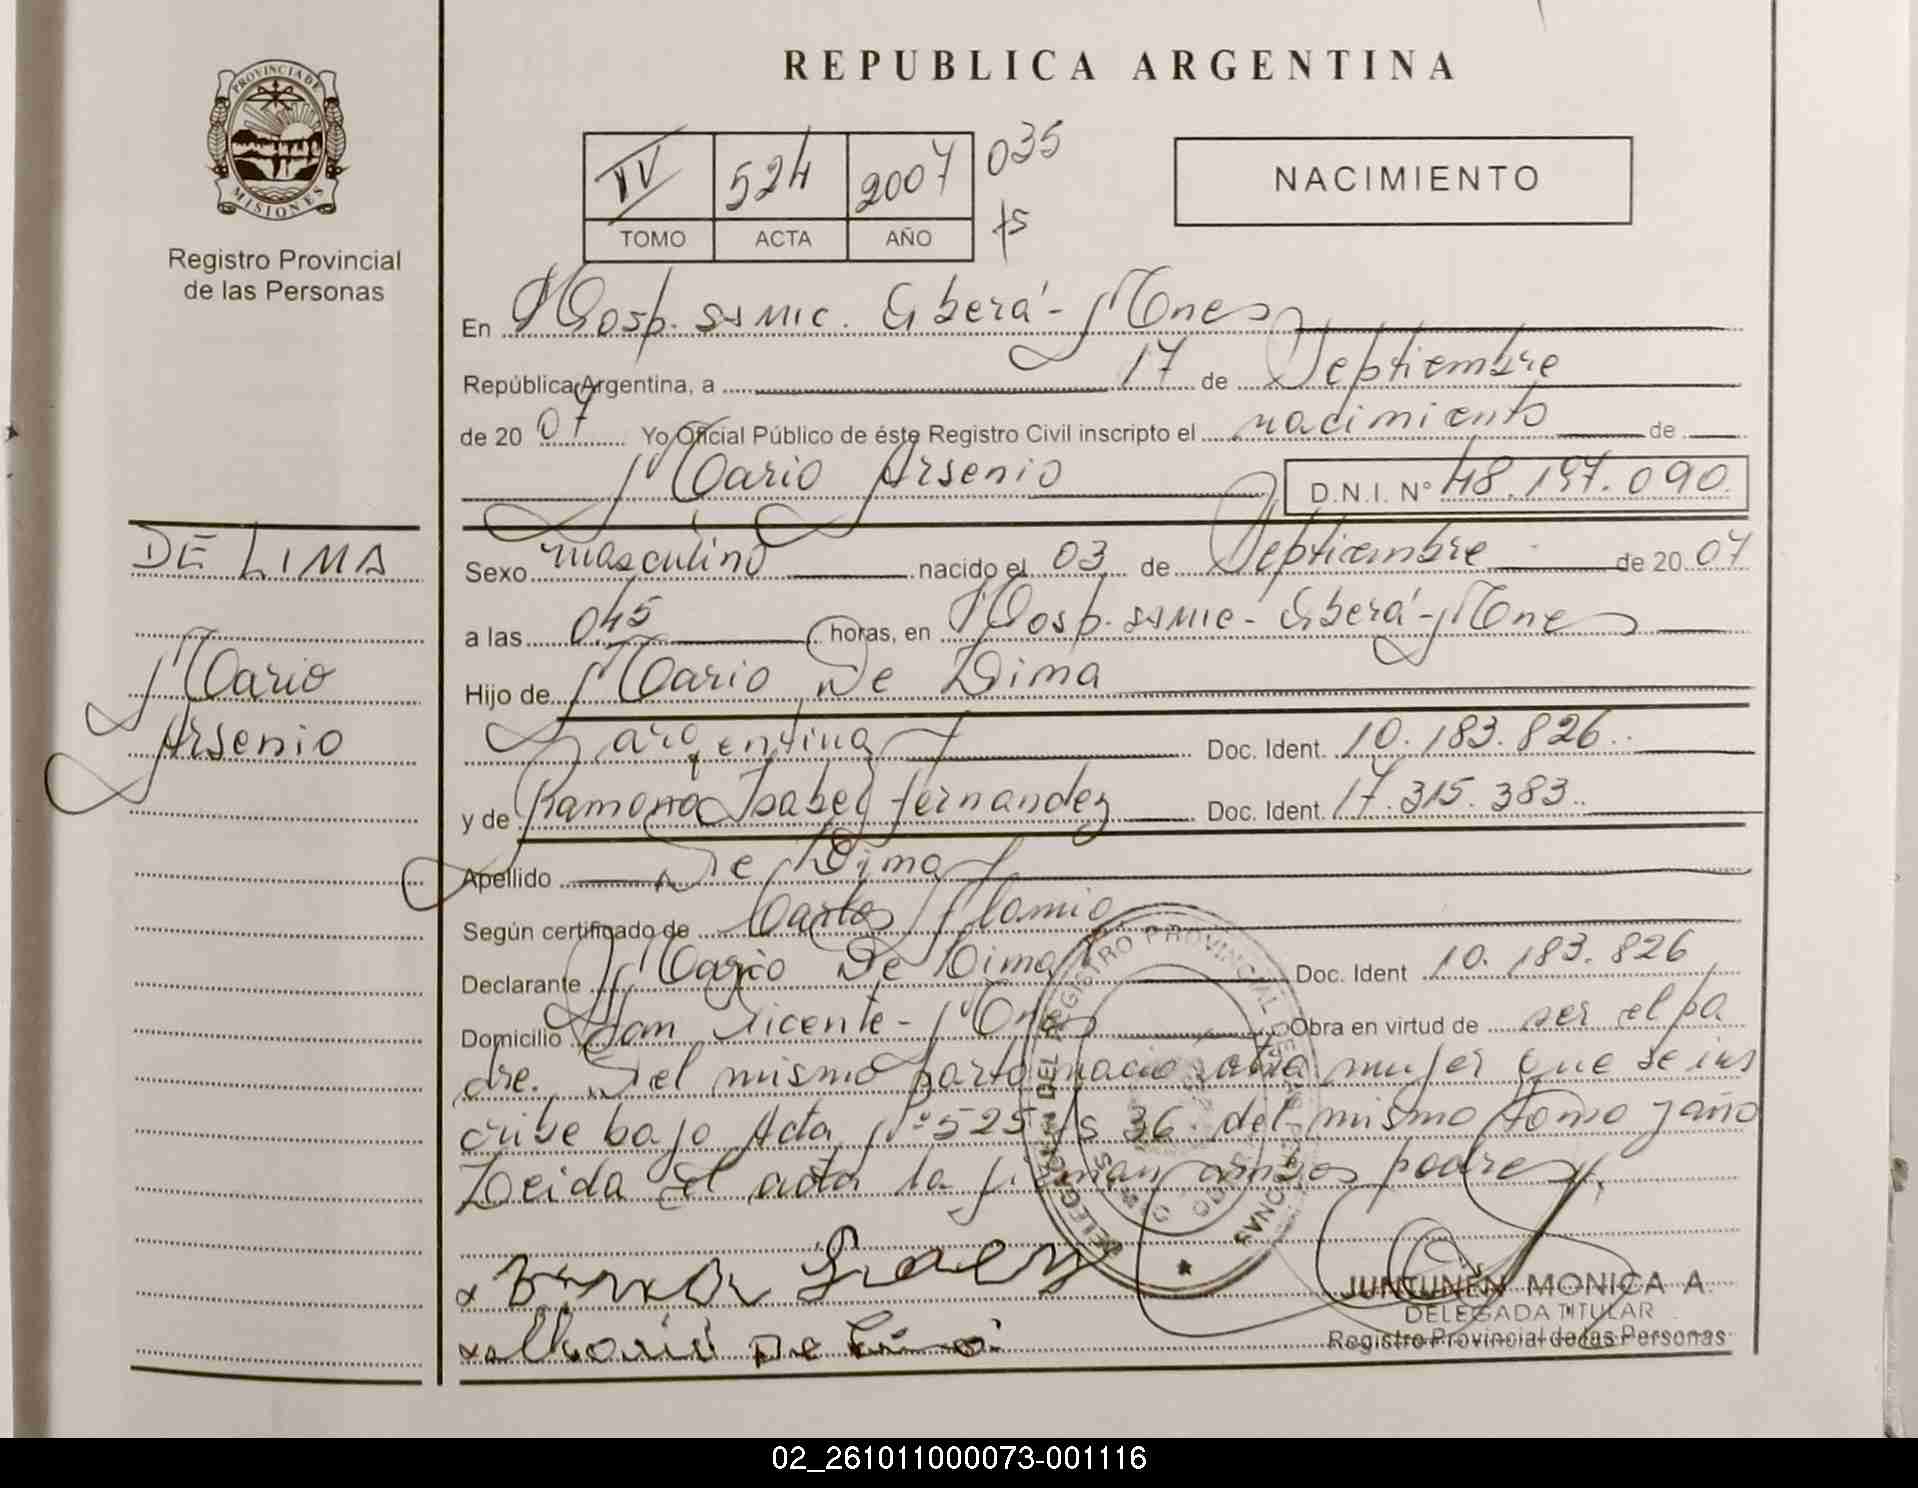 PROVINCIA DE
MISIONES
Registro Provincial
de las Personas
REPUBLICA ARGENTINA
IV 524 2007 035
TOMO ACTA AÑO fs
NACIMIENTO
En Hosp. SAMIC. Oberá - Mnes
República Argentina, a 17 de Septiembre
de 20 07 Yo Oficial Público de éste Registro Civil inscripto el nacimiento de
Mario Arsenio D.N.I. Nº 48.197.090.
DE LIMA
Mario
Arsenio
Sexo masculino nacido el 03 de Septiembre de 20 07
a las 045 horas, en Hosp. SAMIC - Oberá - Mnes
Hijo de Mario De Lima
argentina Doc. Ident. 10.183.826
y de Ramona Isabel Fernandez Doc. Ident. 17.315.383
Apellido De Lima
Según certificado de Carlos
Declarante Mario De Lima Doc. Ident 10.183.826
Domicilio San Vicente - Mnes Obra en virtud de ser el pa
dre. Del mismo parto nació otra mujer que se ins
cribe bajo Acta Nº 525 fs 36 del mismo tomo y año
Leida el acta la firman ambos padres.
DELEGACION DEL REGISTRO PROVINCIAL DE LAS PERSONAS
x
x Mario De Lima
JUNTUNEN MONICA A.
DELEGADA TITULAR
Registro Provincial de las Personas
02_261011000073-001116